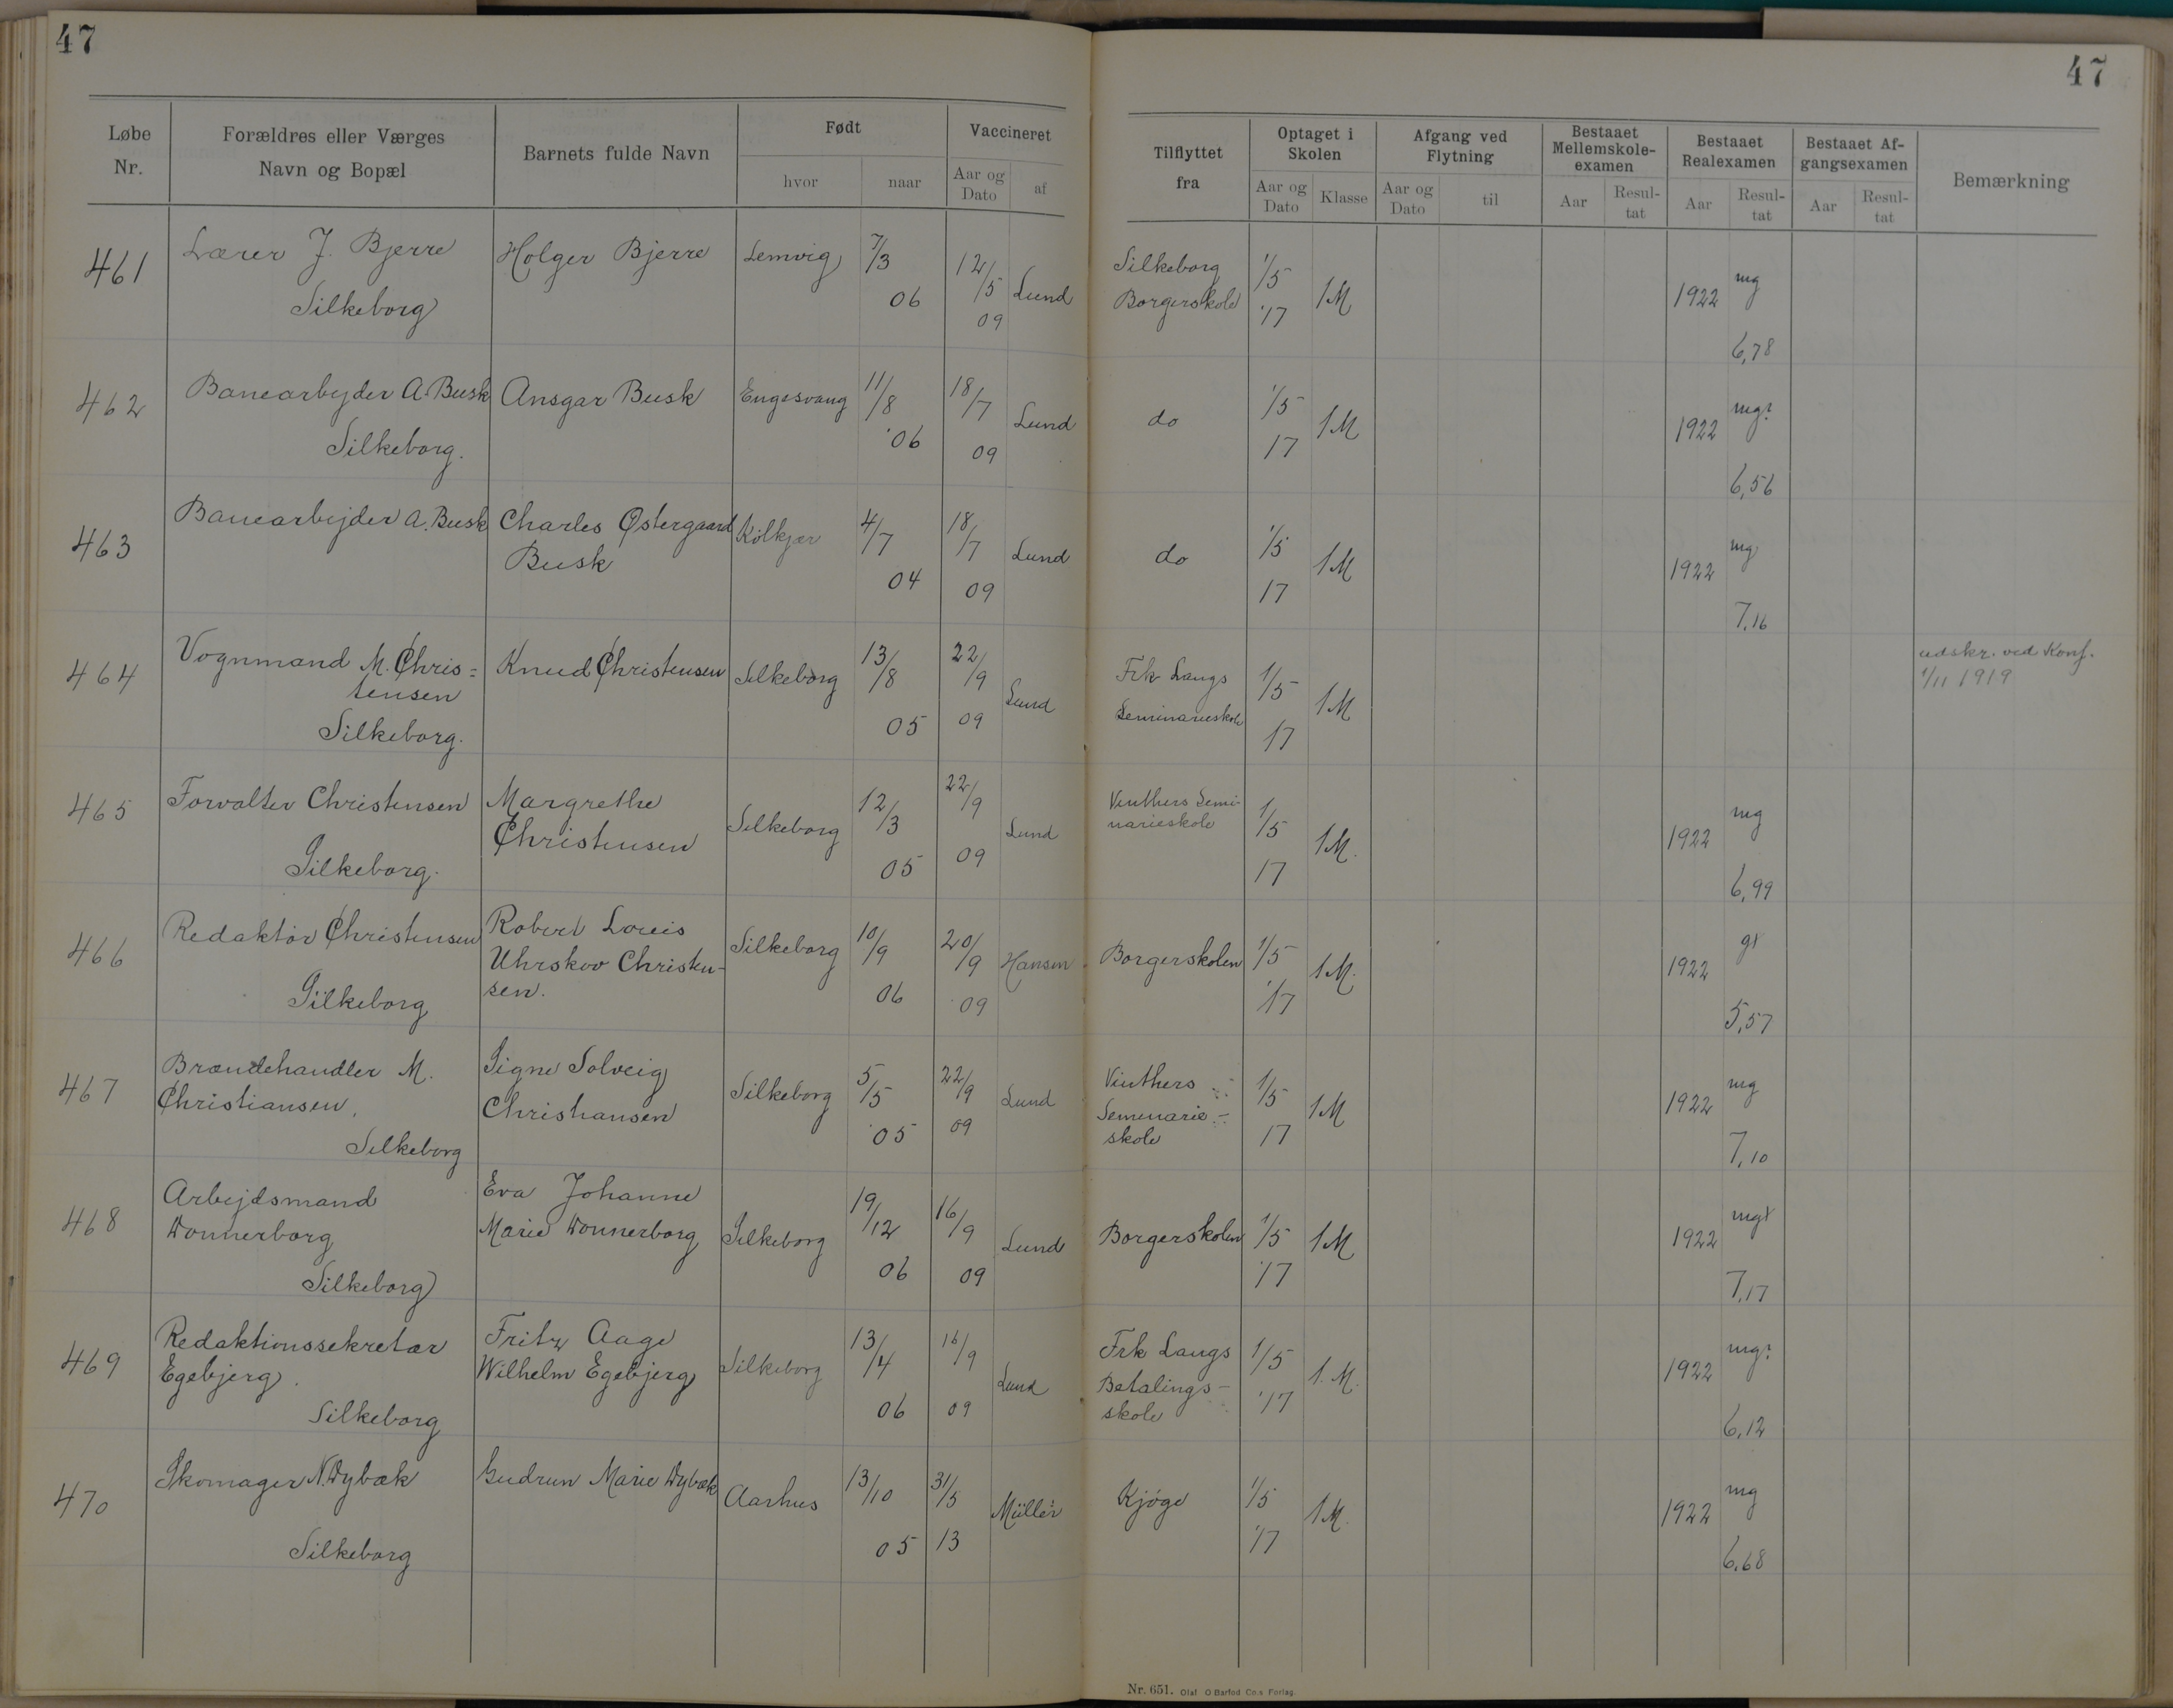 47
47
Løbe Nr. Forældres eller Værges Navn og Bopæl Barnets fulde Navn Født hvor naar Vaccineret Aar og Dato af Tilflyttet fra Optaget i Skolen Aar og Dato Klasse Afgang ved Flytning Aar og Dato til Bestaaet Mellemskole-examen Aar Resul-tat Bestaaet Realexamen Aar Resul-tat Bestaaet Af-gangsexamen Aar Resul-tat Bemærkning
461 Lærer J. Bjerre Holger Bjerre Lemvig 7/3 12/5 Lund Silkeborg 1/5 1M 1922 mg
Silkeborg 06 09 Borgerskole '17 6,78
462 Banearbejder A. Busk Ansgar Busk Engesvang 11/8 18/7 Lund do 1/5 1M 1922 mg?
Silkeborg. '06 09 17 6,56
463 Banearbejder A. Busk Charles Østergaard Kølkjær 4/7 18/7 Lund do 1/5 1M 1922 mg
Busk 04 09 17 7,16
464 Vognmand M. Chris= Knud Christensen Silkeborg 13/8 22/9 Lund Frk Langs 1/5 1M udskr. ved Konf.
tensen Seminarieskole 1/11 1919
Silkeborg. 05 09 17
465 Forvalter Christensen Margrethe Silkeborg 12/3 22/9 Lund Vinthers Semi- 1/5 1M. 1922 mg
Christensen narieskole
Silkeborg. 05 09 17 6,99
466 Redaktør Christensen Robert Louis Silkeborg 10/9 20/9 Hansen Borgerskolen 1/5 1M. 1922 g+
Uhrskov Christen-
Silkeborg sen. 06 09 '17 5,57
467 Brændehandler M. Signe Solveig Silkeborg 5/5 22/9 Lund Vinthers 1/5 1M 1922 mg
Christiansen, Christiansen Seminarie-
Silkeborg '05 09 skole 17 7,10
468 Arbejdsmand Eva Johanne Silkeborg 19/12 16/9 Lund Borgerskolen 1/5 1M 1922 mg+
Donnerborg Marie Donnerborg
Silkeborg 06 09 '17 7,17
469 Redaktionssekretær Fritz Aage Silkeborg 13/4 16/9 Lund Frk Langs 1/5 1. M. 1922 mg?
Egebjerg. Wilhelm Egebjerg Betalings-
Silkeborg 06 09 skole '17 6,12
470 Skomager N. Dybæk Gudrun Marie Dybæk Aarhus 13/10 31/5 Müller Kjøge 1/5 1M. 1922 mg
Silkeborg 05 13 '17 6,68
Nr. 651. Olaf O Barfod Co.s Forlag.